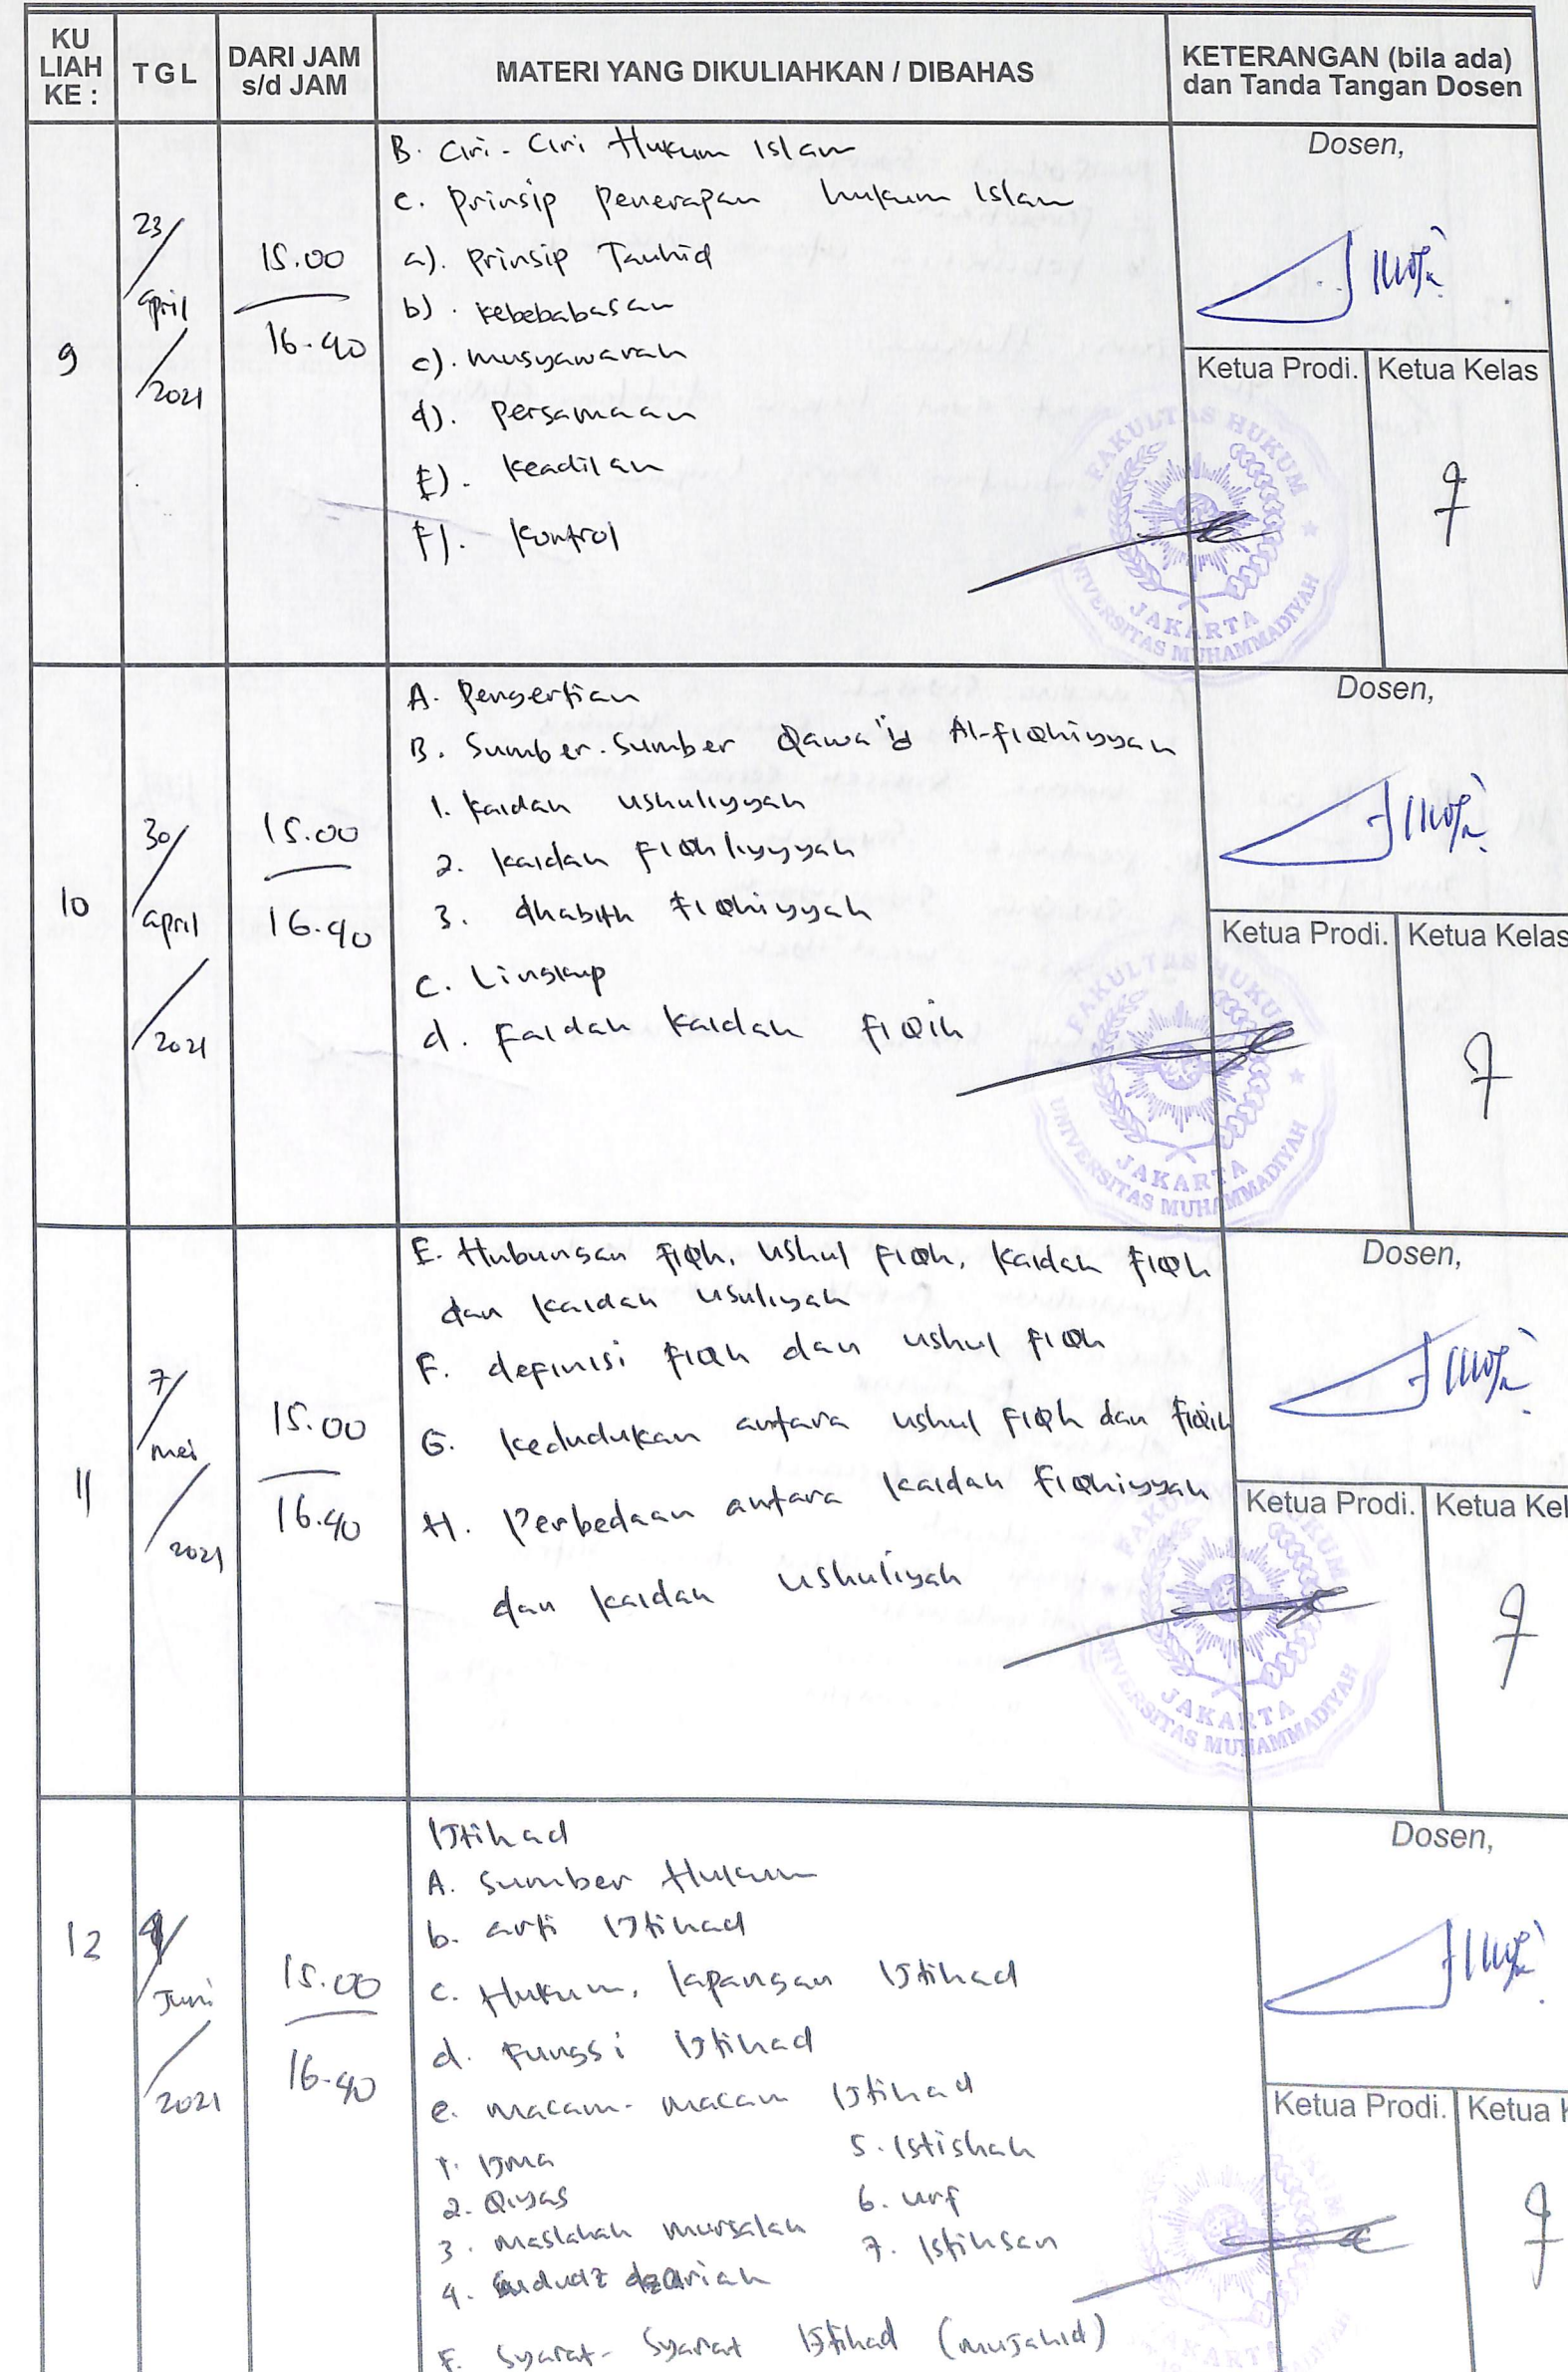 KU LIAH KE :
TGL
DARI JAM s/d JAM
MATERI YANG DIKULIAHKAN / DIBAHAS
KETERANGAN (bila ada) dan Tanda Tangan Dosen
9
23/
april
/2021
15.00
16.40
B. Ciri-Ciri Hukum Islam
c. Prinsip Penerapan hukum Islam
a). Prinsip Tauhid
b). kebebabasan
c). musyawarah
d). Persamaan
E). Keadilan
F). Kontrol
Dosen,
Ketua Prodi.
Ketua Kelas
FAKULTAS HUKUM
JAKARTA
UNIVERSITAS MUHAMMADIYAH
10
30/
april
/2021
15.00
16.40
A. Pengertian
B. Sumber-Sumber Qawa'id Al-fiQhiyyah
1. Kaidah ushuliyyah
2. Kaidah FiQhliyyyah
3. dhabith FiQhiyyah
C. Lingkup
d. Faidah Kaidah FiQih
Dosen,
Ketua Prodi.
Ketua Kelas
FAKULTAS HUKUM
JAKARTA
UNIVERSITAS MUHAMMADIYAH
11
7/
mei
/2021
15.00
16.40
E. Hubungan FiQh, Ushul FiQh, Kaidah FiQh
dan Kaidah Usuliyah
F. definisi FiQh dan ushul FiQh
G. Kedudukan antara ushul FiQh dan FiQih
H. Perbedaan antara Kaidah FiQhiyyah
dan Kaidah Ushuliyah
Dosen,
Ketua Prodi.
Ketua Kel
JAKARTA
UNIVERSITAS MUHAMMADIYAH
12
Juni
/2021
15.00
16.40
IJtihad
A. Sumber Hukum
b. arti IJtihad
c. Hukum, lapangan IJtihad
d. Fungsi IJtihad
e. macam-macam IJtihad
1. IJma
2. Qiyas
3. Maslahah mursalah
4. dzariah
5. Istishah
6. urf
7. Istihsan
F. Syarat-Syarat IJtihad (muJahid)
Dosen,
Ketua Prodi.
Ketua K